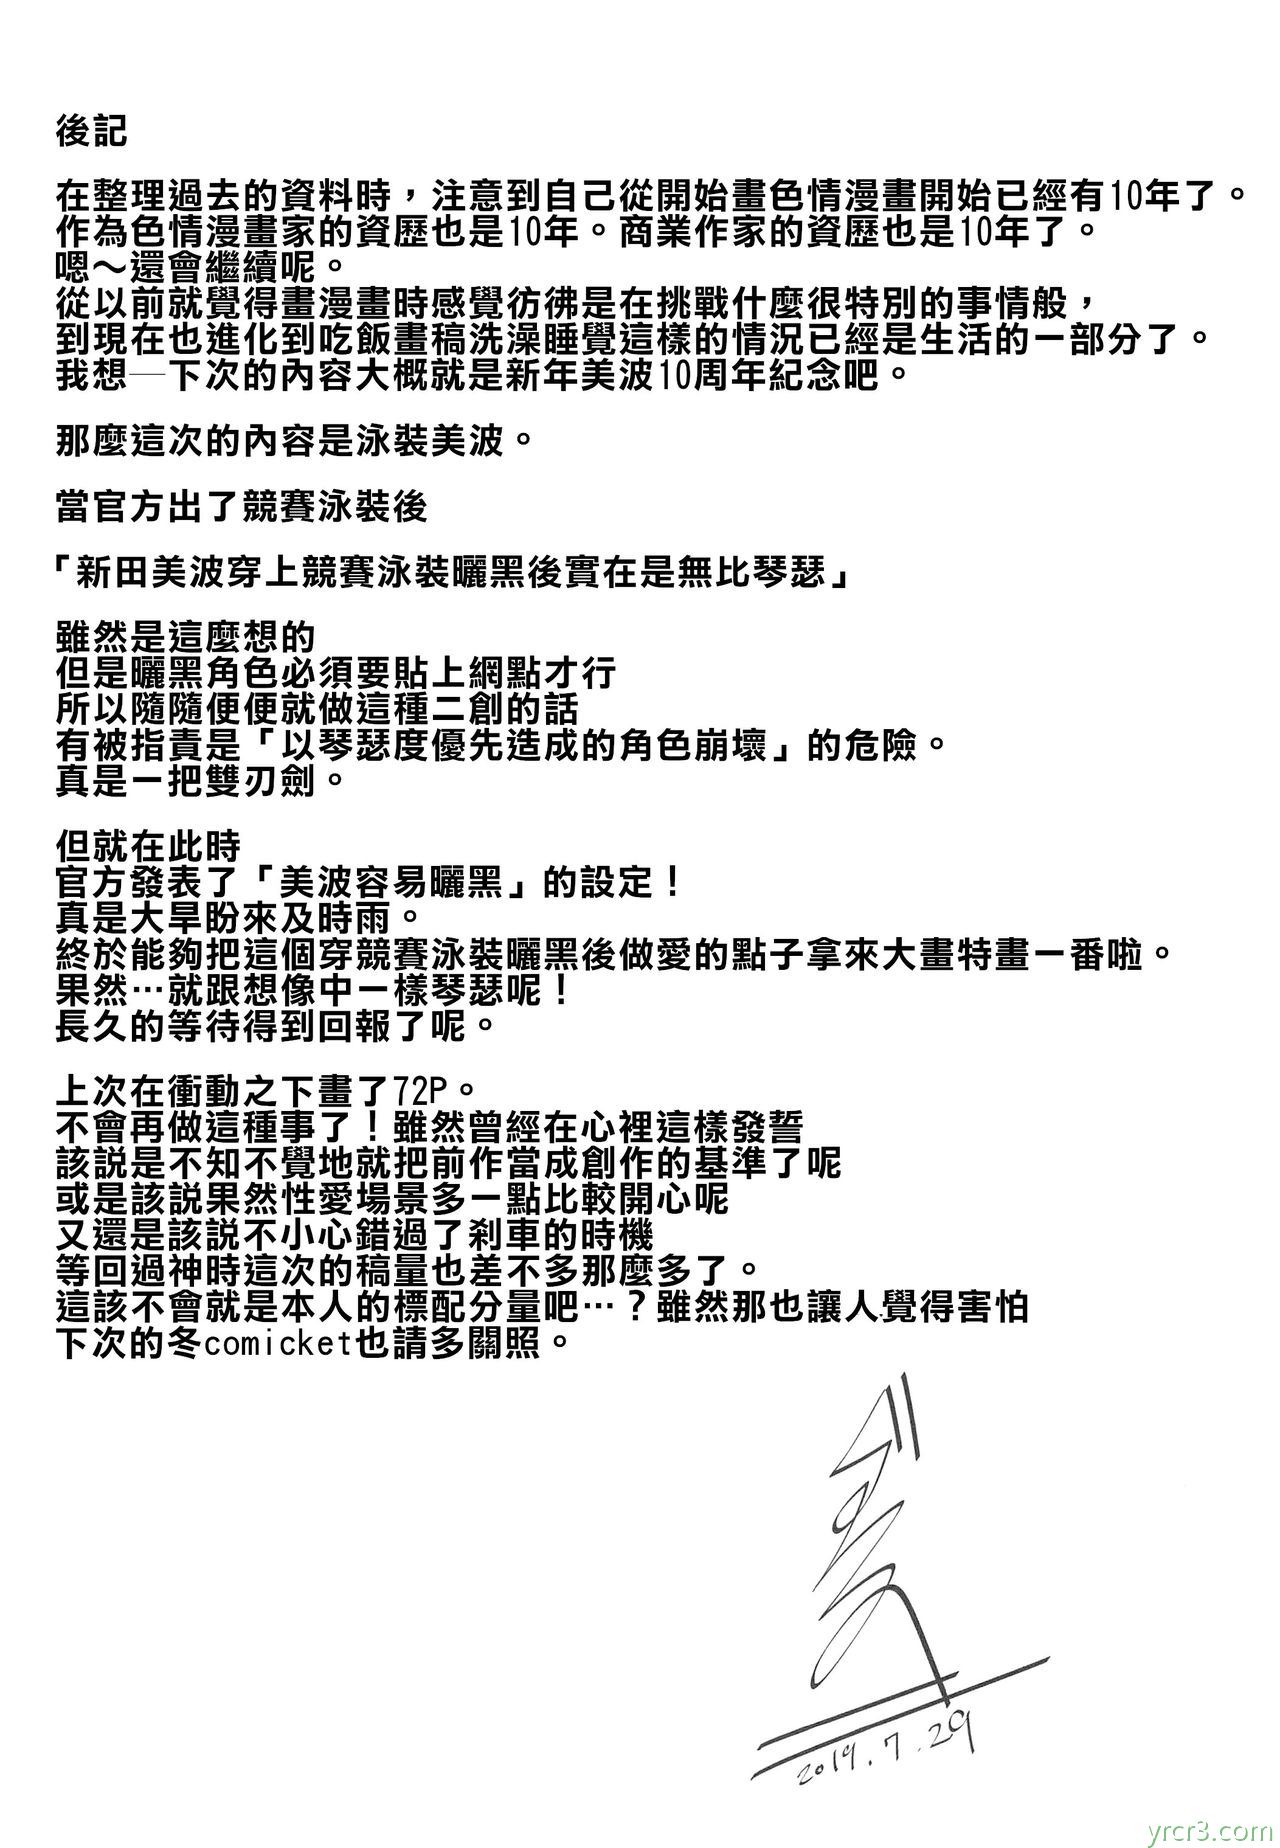 後記
在整理過去的資料時，注意到自己從開始畫色情漫畫開始已經有10年了。
作為色情漫畫家的資歷也是10年。商業作家的資歷也是10年了。
嗯～還會繼續呢。
從以前就覺得畫漫畫時感覺彷彿是在挑戰什麼很特別的事情般，
到現在也進化到吃飯畫稿洗澡睡覺這樣的情況已經是生活的一部分了。
我想─下次的內容大概就是新年美波10周年紀念吧。
那麼這次的內容是泳裝美波。
當官方出了競賽泳裝後
「新田美波穿上競賽泳裝曬黑後實在是無比琴瑟」
雖然是這麼想的
但是曬黑角色必須要貼上網點才行
所以隨隨便便就做這種二創的話
有被指責是「以琴瑟度優先造成的角色崩壞」的危險。
真是一把雙刃劍。
但就在此時
官方發表了「美波容易曬黑」的設定！
真是大旱盼來及時雨。
終於能夠把這個穿競賽泳裝曬黑後做愛的點子拿來大畫特畫一番啦。
果然…就跟想像中一樣琴瑟呢！
長久的等待得到回報了呢。
上次在衝動之下畫了72P。
不會再做這種事了！雖然曾經在心裡這樣發誓
該說是不知不覺地就把前作當成創作的基準了呢
或是該說果然性愛場景多一點比較開心呢
又還是該說不小心錯過了剎車的時機
等回過神時這次的稿量也差不多那麼多了。
這該不會就是本人的標配分量吧…？雖然那也讓人覺得害怕
下次的冬comicket也請多關照。
2019.7.29
yrcr3.com